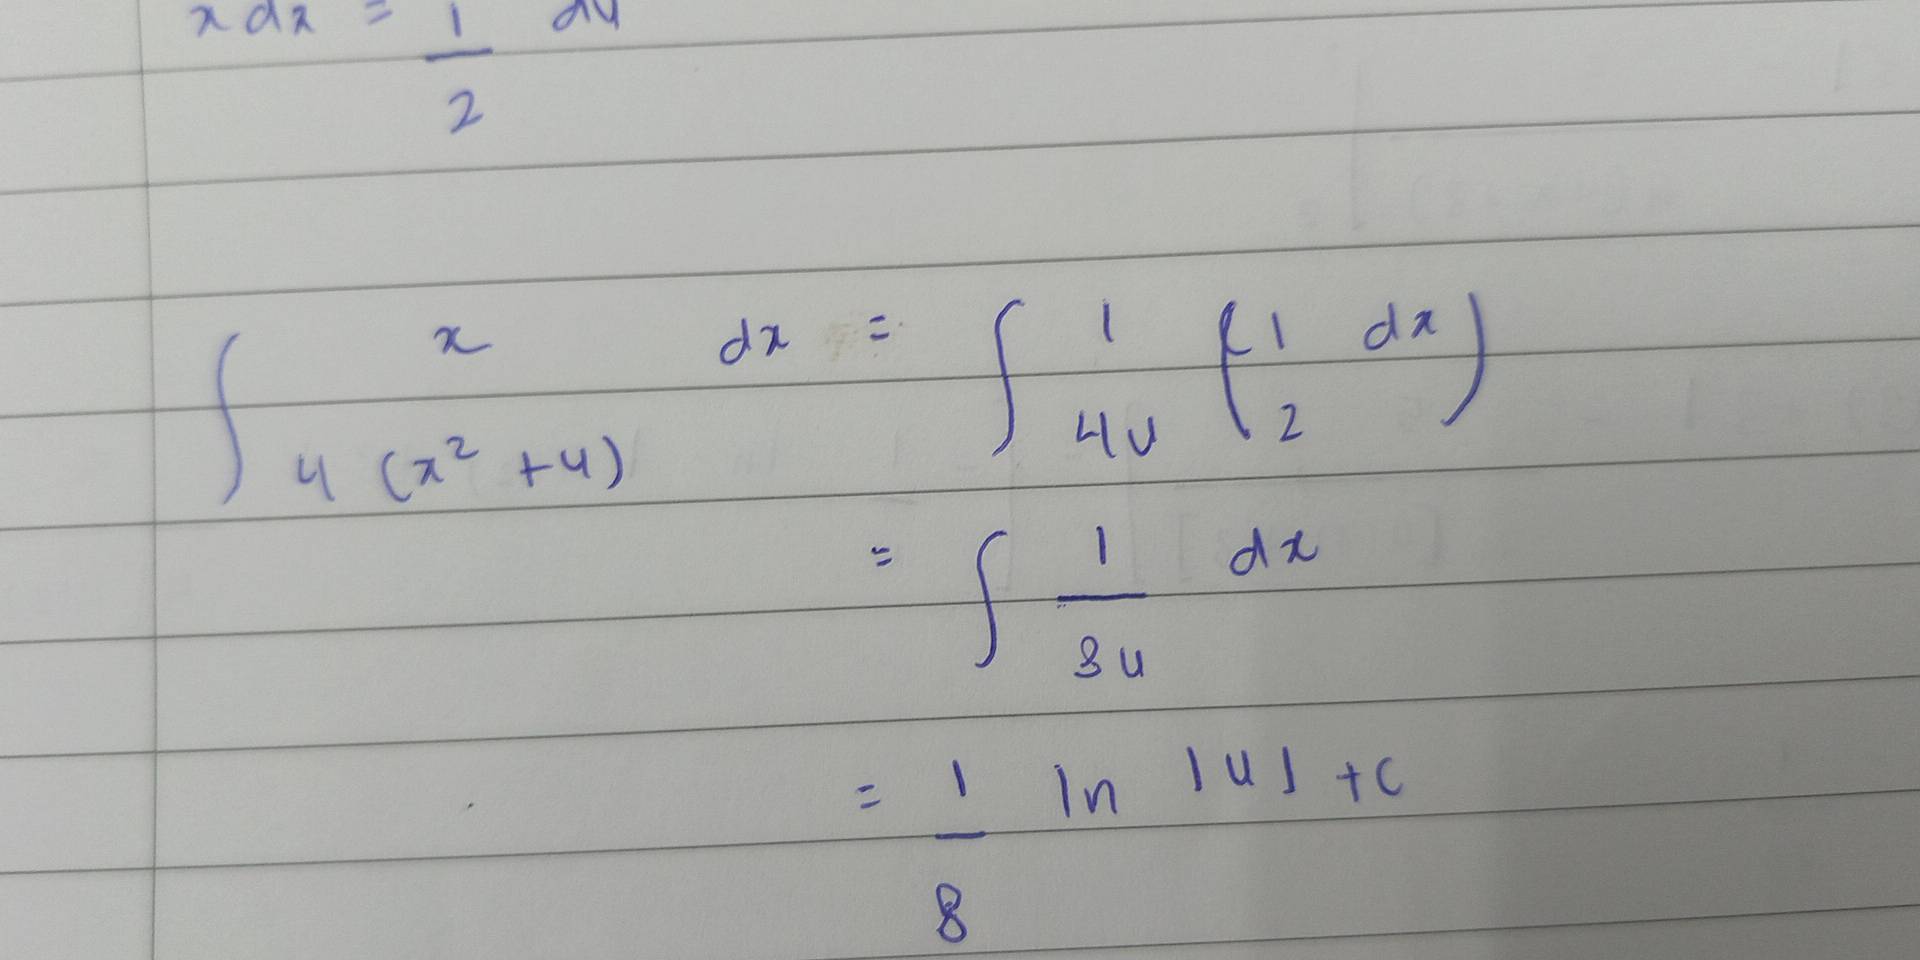 x dx = 1/2 du
∫ x / 4 (x² + 4) dx = ∫ 1 / 4u (1/2 dx)
= ∫ 1 / 8u dx
= 1/8 ln |u| + c